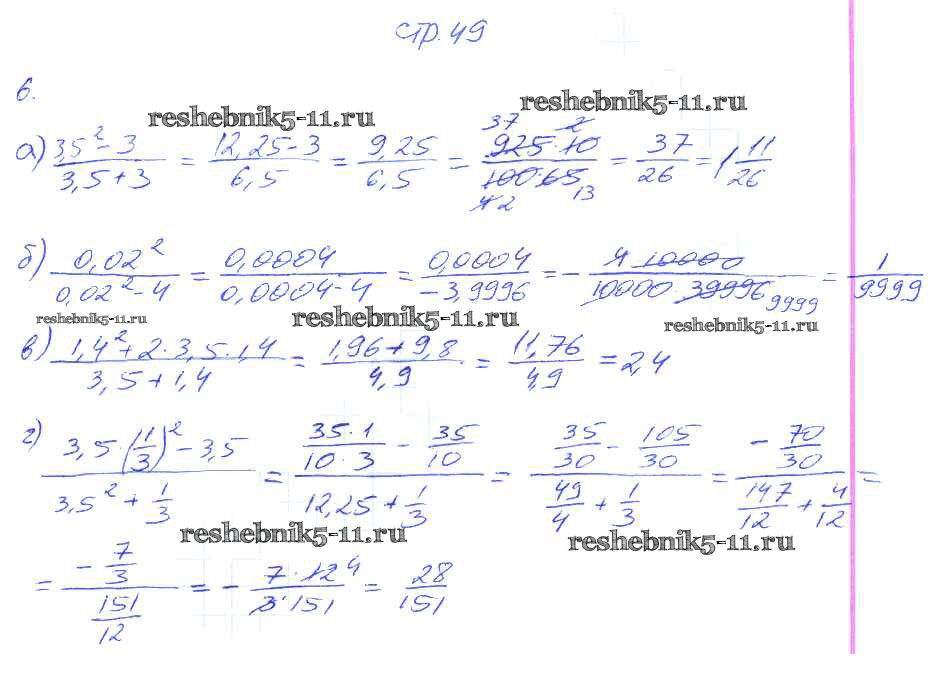 стр. 49
6.
reshebnik5-11.ru reshebnik5-11.ru
а) (3,5² - 3)/(3,5 + 3) = (12,25 - 3)/(6,5) = 9,25/6,5 = (925·10)/(100·65) 37 2 4 2 13 = 37/26 = 1 11/26
б) (0,02²)/(0,02² - 4) = 0,0004/(0,0004 - 4) = 0,0004/(-3,9996) = - (4·10000)/(10000·39996) 9999 = 1/9999
reshebnik5-11.ru reshebnik5-11.ru reshebnik5-11.ru
в) (1,4² + 2·3,5·1,4)/(3,5 + 1,4) = (1,96 + 9,8)/(4,9) = 11,76/4,9 = 2,4
г) (3,5·(1/3)² - 3,5)/(3,5² + 1/3) = ((35·1)/(10·3) - 35/10)/(12,25 + 1/3) = (35/30 - 105/30)/(49/4 + 1/3) = (-70/30)/(147/12 + 4/12) =
reshebnik5-11.ru reshebnik5-11.ru
= (-7/3)/(151/12) = - (7·12 4)/(3·151) = 28/151